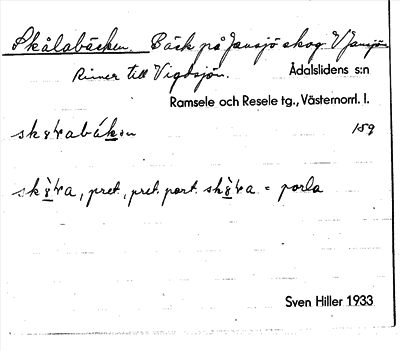 Skålabäcken. Bäck på Jansjö skog V Jansjön
Rinner till Vigdsjön.
Ådalslidens s:n
Ramsele och Resele tg., Västernorrl. l.
159
, pret., pret. part. = porla
Sven Hiller 1933